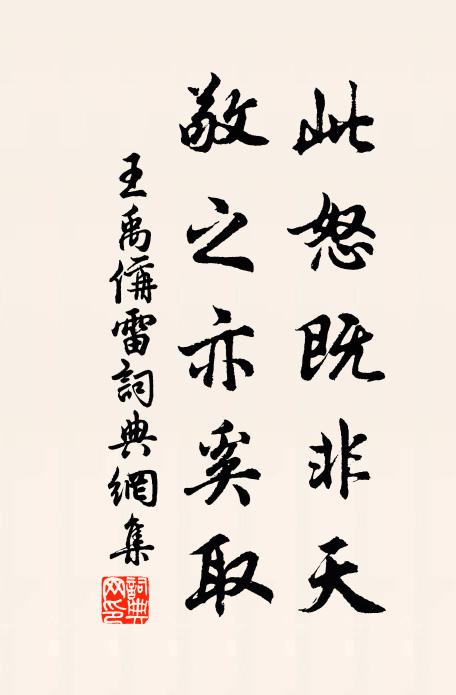 此怒既非天
敬之亦奚取
王禹偁雷詞典網集
詞典網印